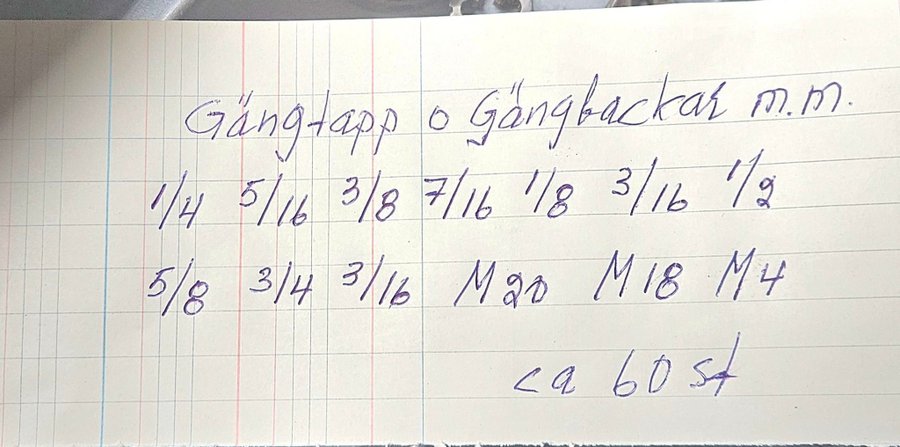 Gängtapp o Gängbackar m.m.
1/4 5/16 3/8 7/16 1/8 3/16 1/2
5/8 3/4 3/16 M20 M18 M4
ca 60 st